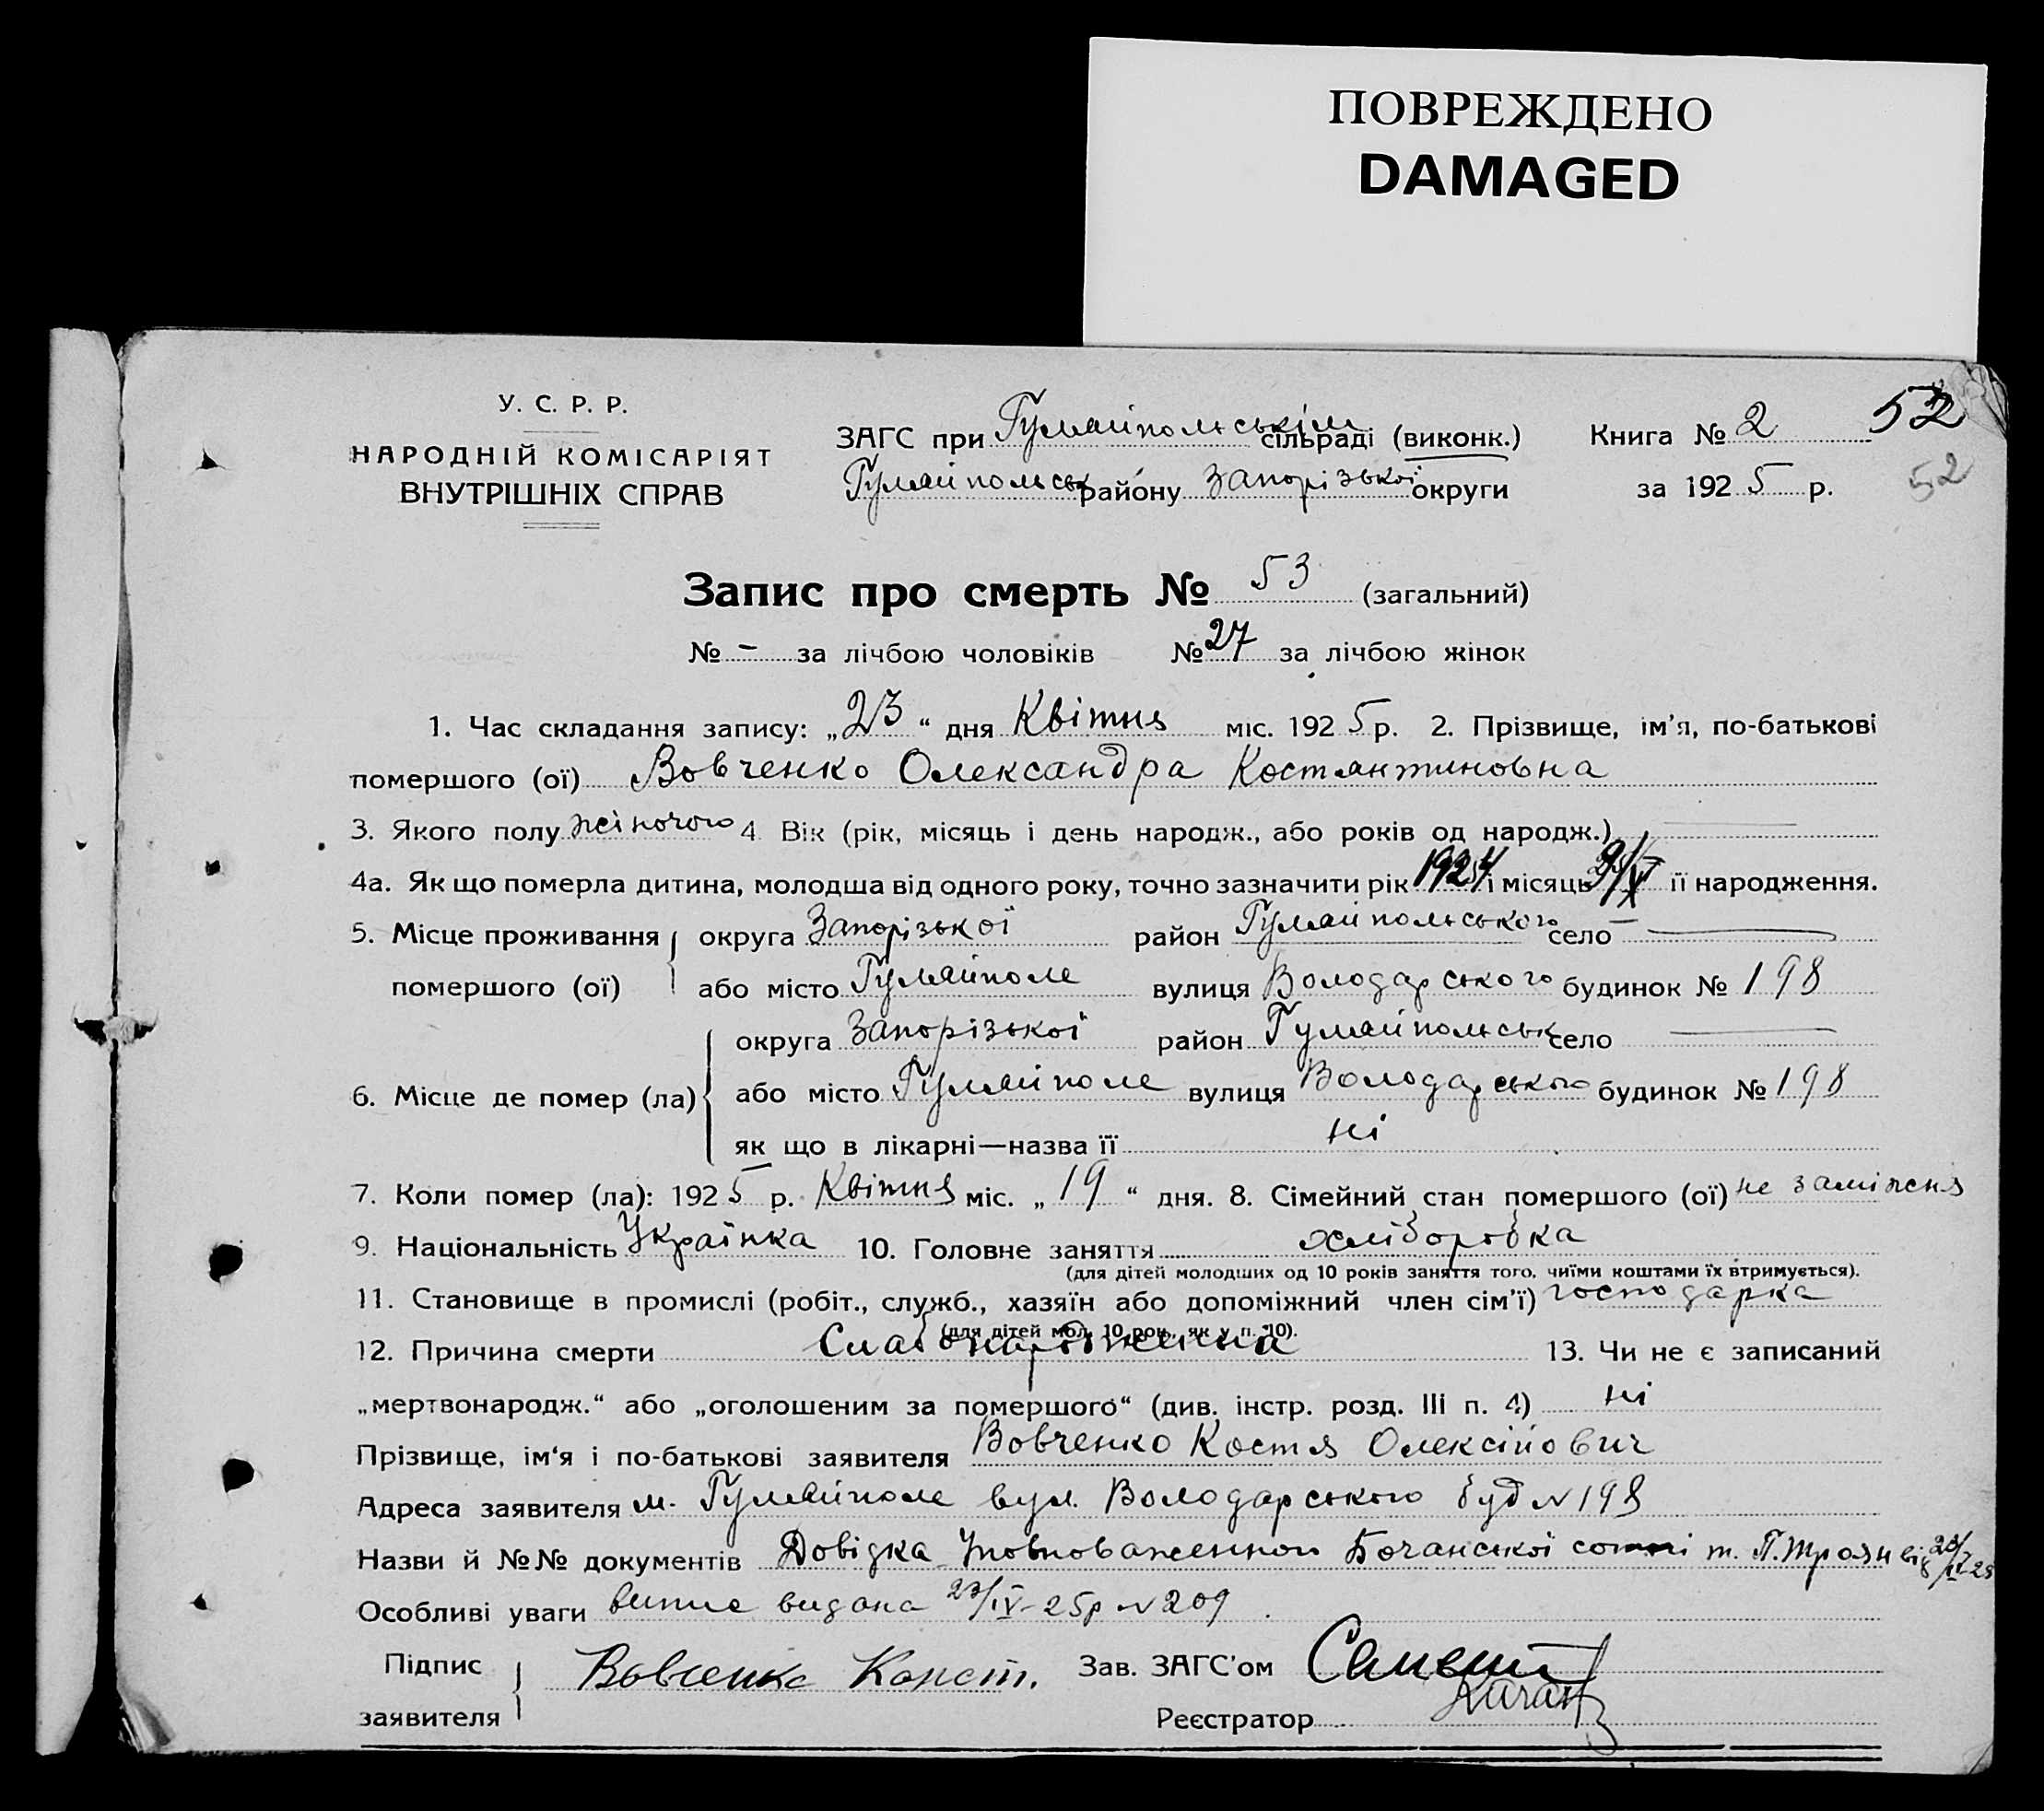 ПОВРЕЖДЕНО
DAMAGED
У. С. Р. Р.
НАРОДНІЙ КОМІСАРІЯТ
ВНУТРІШНІХ СПРАВ
ЗАГС при Гуляйпольськім сільраді (виконк.)
Гуляйпольськ району Запорізької округи
Книга № 2
за 1925 р.
52
52
Запис про смерть № 53 (загальний)
№ – за лічбою чоловіків № 27 за лічбою жінок
1. Час складання запису: „23“ дня Квітня міс. 1925 р. 2. Прізвище, ім'я, по-батькові
помершого (ої) Вовченко Олександра Костянтиновна
3. Якого полу жіночого 4. Вік (рік, місяць і день народж., або років од народж.) —
4а. Як що померла дитина, молодша від одного року, точно зазначити рік 1924 і місяць її народження.
5. Місце проживання помершого (ої) округа Запорізької район Гуляйпольського село —
або місто Гуляйполе вулиця Володарського будинок № 198
6. Місце де помер (ла) округа Запорізької район Гуляйпольськ село —
або місто Гуляйполе вулиця Володарського будинок № 198
як що в лікарні—назва її ні
7. Коли помер (ла): 1925 р. Квітня міс. „19“ дня. 8. Сімейний стан помершого (ої) не заміжня
9. Національність Українка 10. Головне заняття хліборобка
(для дітей молодших од 10 років заняття того, чиїми коштами їх втримується).
11. Становище в промислі (робіт., служб., хазяїн або допоміжний член сім'ї) господарка
(для дітей мол. 10 рок., як у п. 10).
12. Причина смерти Слабонарожденна 13. Чи не є записаний
„мертвонародж.“ або „оголошеним за помершого“ (див. інстр. розд. III п. 4) ні
Прізвище, ім'я і по-батькові заявителя Вовченко Костя Олексійович
Адреса заявителя м. Гуляйполе вул. Володарського буд № 198
Назви й №№ документів Довідка Уповноваженного Бочанської сотні т. П. Троян від
Особливі уваги випис видана 23/IV-25р № 209
Підпис заявителя Вовченко Конст. Зав. ЗАГС'ом
Реєстратор